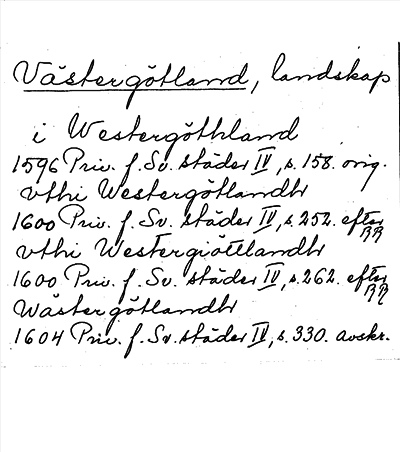 Västergötland, landskap
i Westergöthland
1596 Priv. f. Sv. städer IV, s. 158. orig.
vthi Westergötlandh
1600 Priv. f. Sv. städer IV, s. 252. efter RR
vthi Westergiötlandh
1600 Priv. f. Sv. städer IV, s. 262. efter RR
Wästergötlandh
1604 Priv. f. Sv. städer IV, s. 330. avskr.